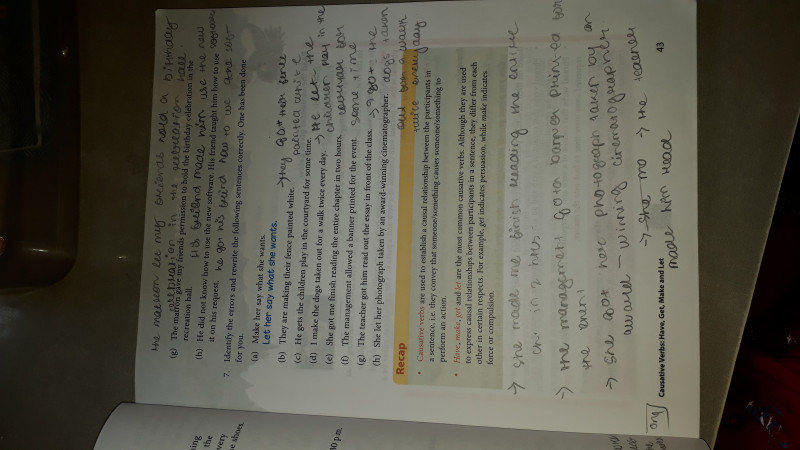 The matron let my friends hold a birthday
celebration in the recreation hall
(g) The matron gave my friends permission to hold the birthday celebration in the
recreation hall.
His friend made him use the new
(h) He did not know how to use the new software. His friend taught him how to use
it on his request.
7. Identify the errors and rewrite the following sentences correctly. One has been done
for you.
(a) Make her say what she wants.
Let her say what she wants.
(b) They are making their fence painted white. → They got their fence
painted white
(c) He gets the children play in the courtyard for some time. → He let the
children play in the
courtyard for
some time
(d) I make the dogs taken out for a walk twice every day. → I got the
dogs taken
out for a walk
twice everyday
(e) She got me finish reading the entire chapter in two hours.
(f) The management allowed a banner printed for the event.
(g) The teacher got him read out the essay in front of the class.
(h) She let her photograph taken by an award-winning cinematographer.
Recap
• Causative verbs are used to establish a causal relationship between the participants in
a sentence, i.e. they convey that someone/something causes someone/something to
perform an action.
• Have, make, get and let are the most common causative verbs. Although they are used
to express causal relationships between participants in a sentence, they differ from each
other in certain respects. For example, get indicates persuasion, while make indicates
force or compulsion.
→ She made me finish reading the entire
in 2 hrs
→ The management got a banner printed for
the event
→ She got here photograph taken by an
award-winning cinematographer
→ the teacher
made him read
Causative Verbs: Have, Get, Make and Let
43
ing
the
very
e shoes.
30 p.m.